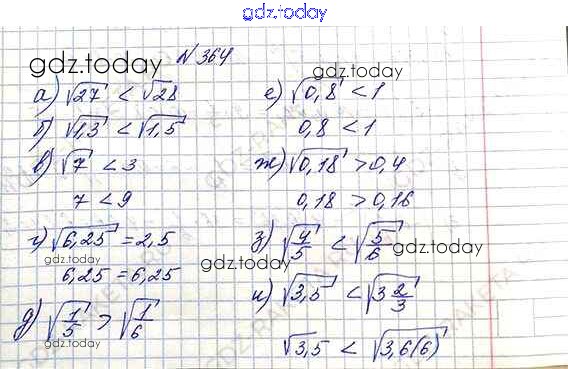 gdz.today
N 364
gdz.today
gdz.today
а) √27 < √28
б) √1,3 < √1,5
в) √7 < 3
7 < 9
г) √6,25 = 2,5
gdz.today
6,25 = 6,25
д) √1/5 > √1/6
gdz.today
е) √0,8 < 1
0,8 < 1
ж) √0,18 > 0,4
0,18 > 0,16
з) √4/5 < √5/6
gdz.today
gdz.today
и) √3,5 < √3 2/3
√3,5 < √3,6(6)
gdz.today